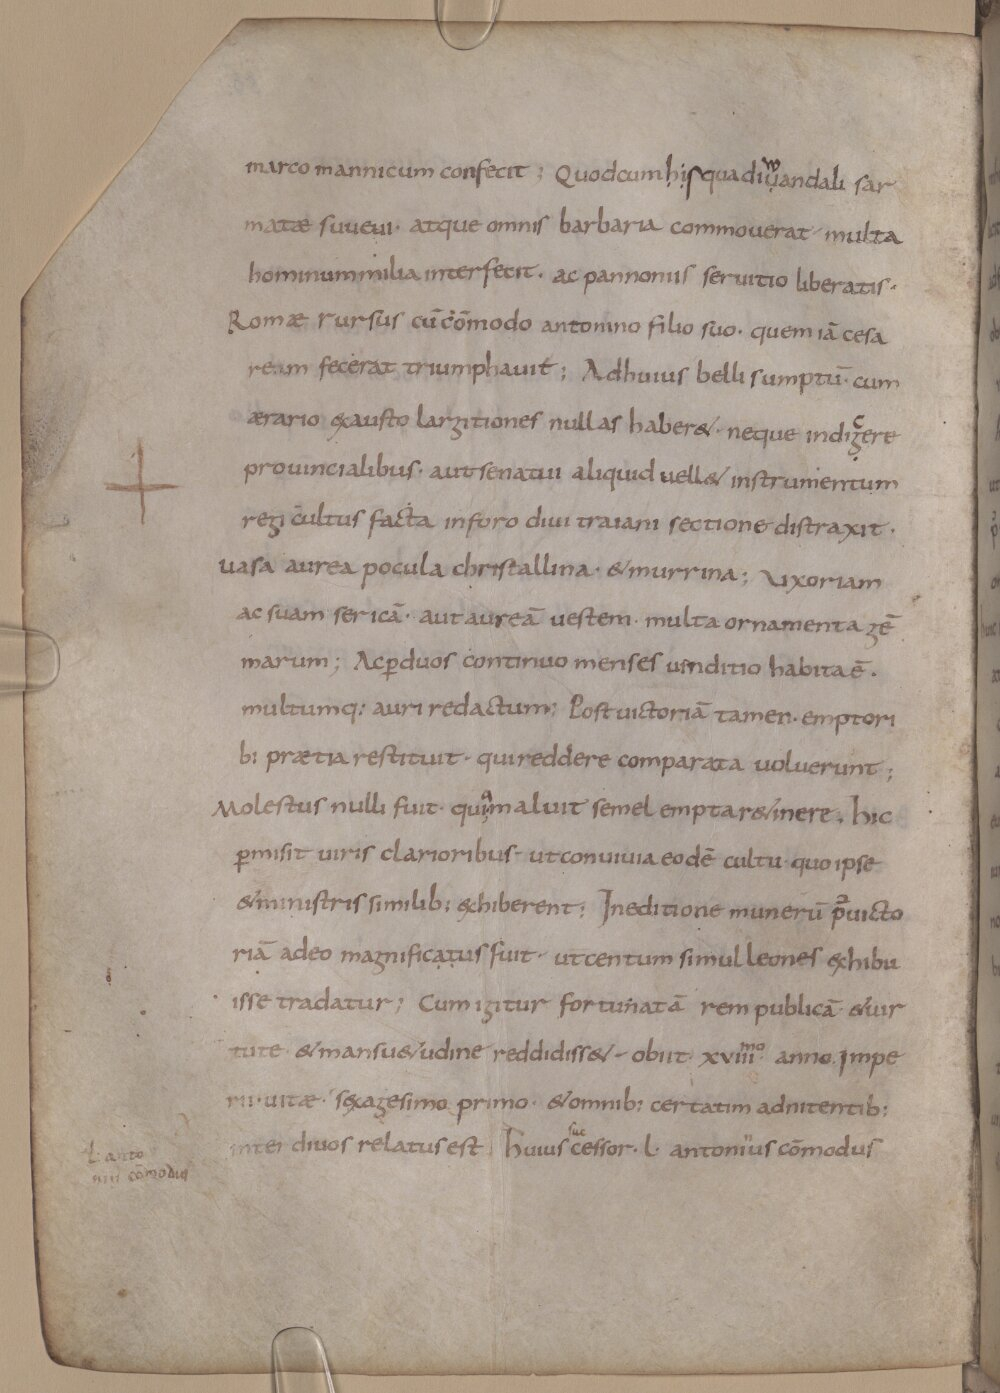 marco mannicum confecit ; Quod cum hisquadi uuandali sar
matæ suueui · atque omnis barbaria commouerat · multa
hominum milia interfecit · ac pannoniis seruitio liberatis ·
Romæ rursus cū cōmodo antonino filio suo · quem iā cesa
ream fecerat triumphauit ; Ad huius belli sumptū · cum
ærario exausto largitiones nullas haber& · neque indigere
prouincialibus · aut senatui aliquid uell& instrumentum
regi cultus facta in foro diui traiani sectione distraxit ·
uasa aurea pocula christallina · & murrina ; uxoriam
ac suam sericā · aut aureā uestem · multa ornamenta gē
marum ; Ac ꝑ duos continuo menses uenditio habita ē ·
multumq: auri redactum ; Post uictoriā tamen · emptori
b: prætia restituit · qui reddere comparata uoluerunt ;
Molestus nulli fuit · qui maluit semel empta r&inere . hic
ꝑmisit uiris clarioribus · ut conuiuia eodē cultu quo ipse
& ministris similib; exhiberent ; In editione munerū p̄ uicto
riā adeo magnificatus fuit · ut centum simul leones exhibu
isse tradatur ; Cum igitur fortunatā rem publicā & uir
tute & mansu&udine reddidiss& · obiit xviii mo anno Impe
rii · uitæ · sexagesimo primo · & omnib; certatim adnitentib;
inter diuos relatus est huius successor · L · antoninus cōmodus
L anto
nin cōmodus